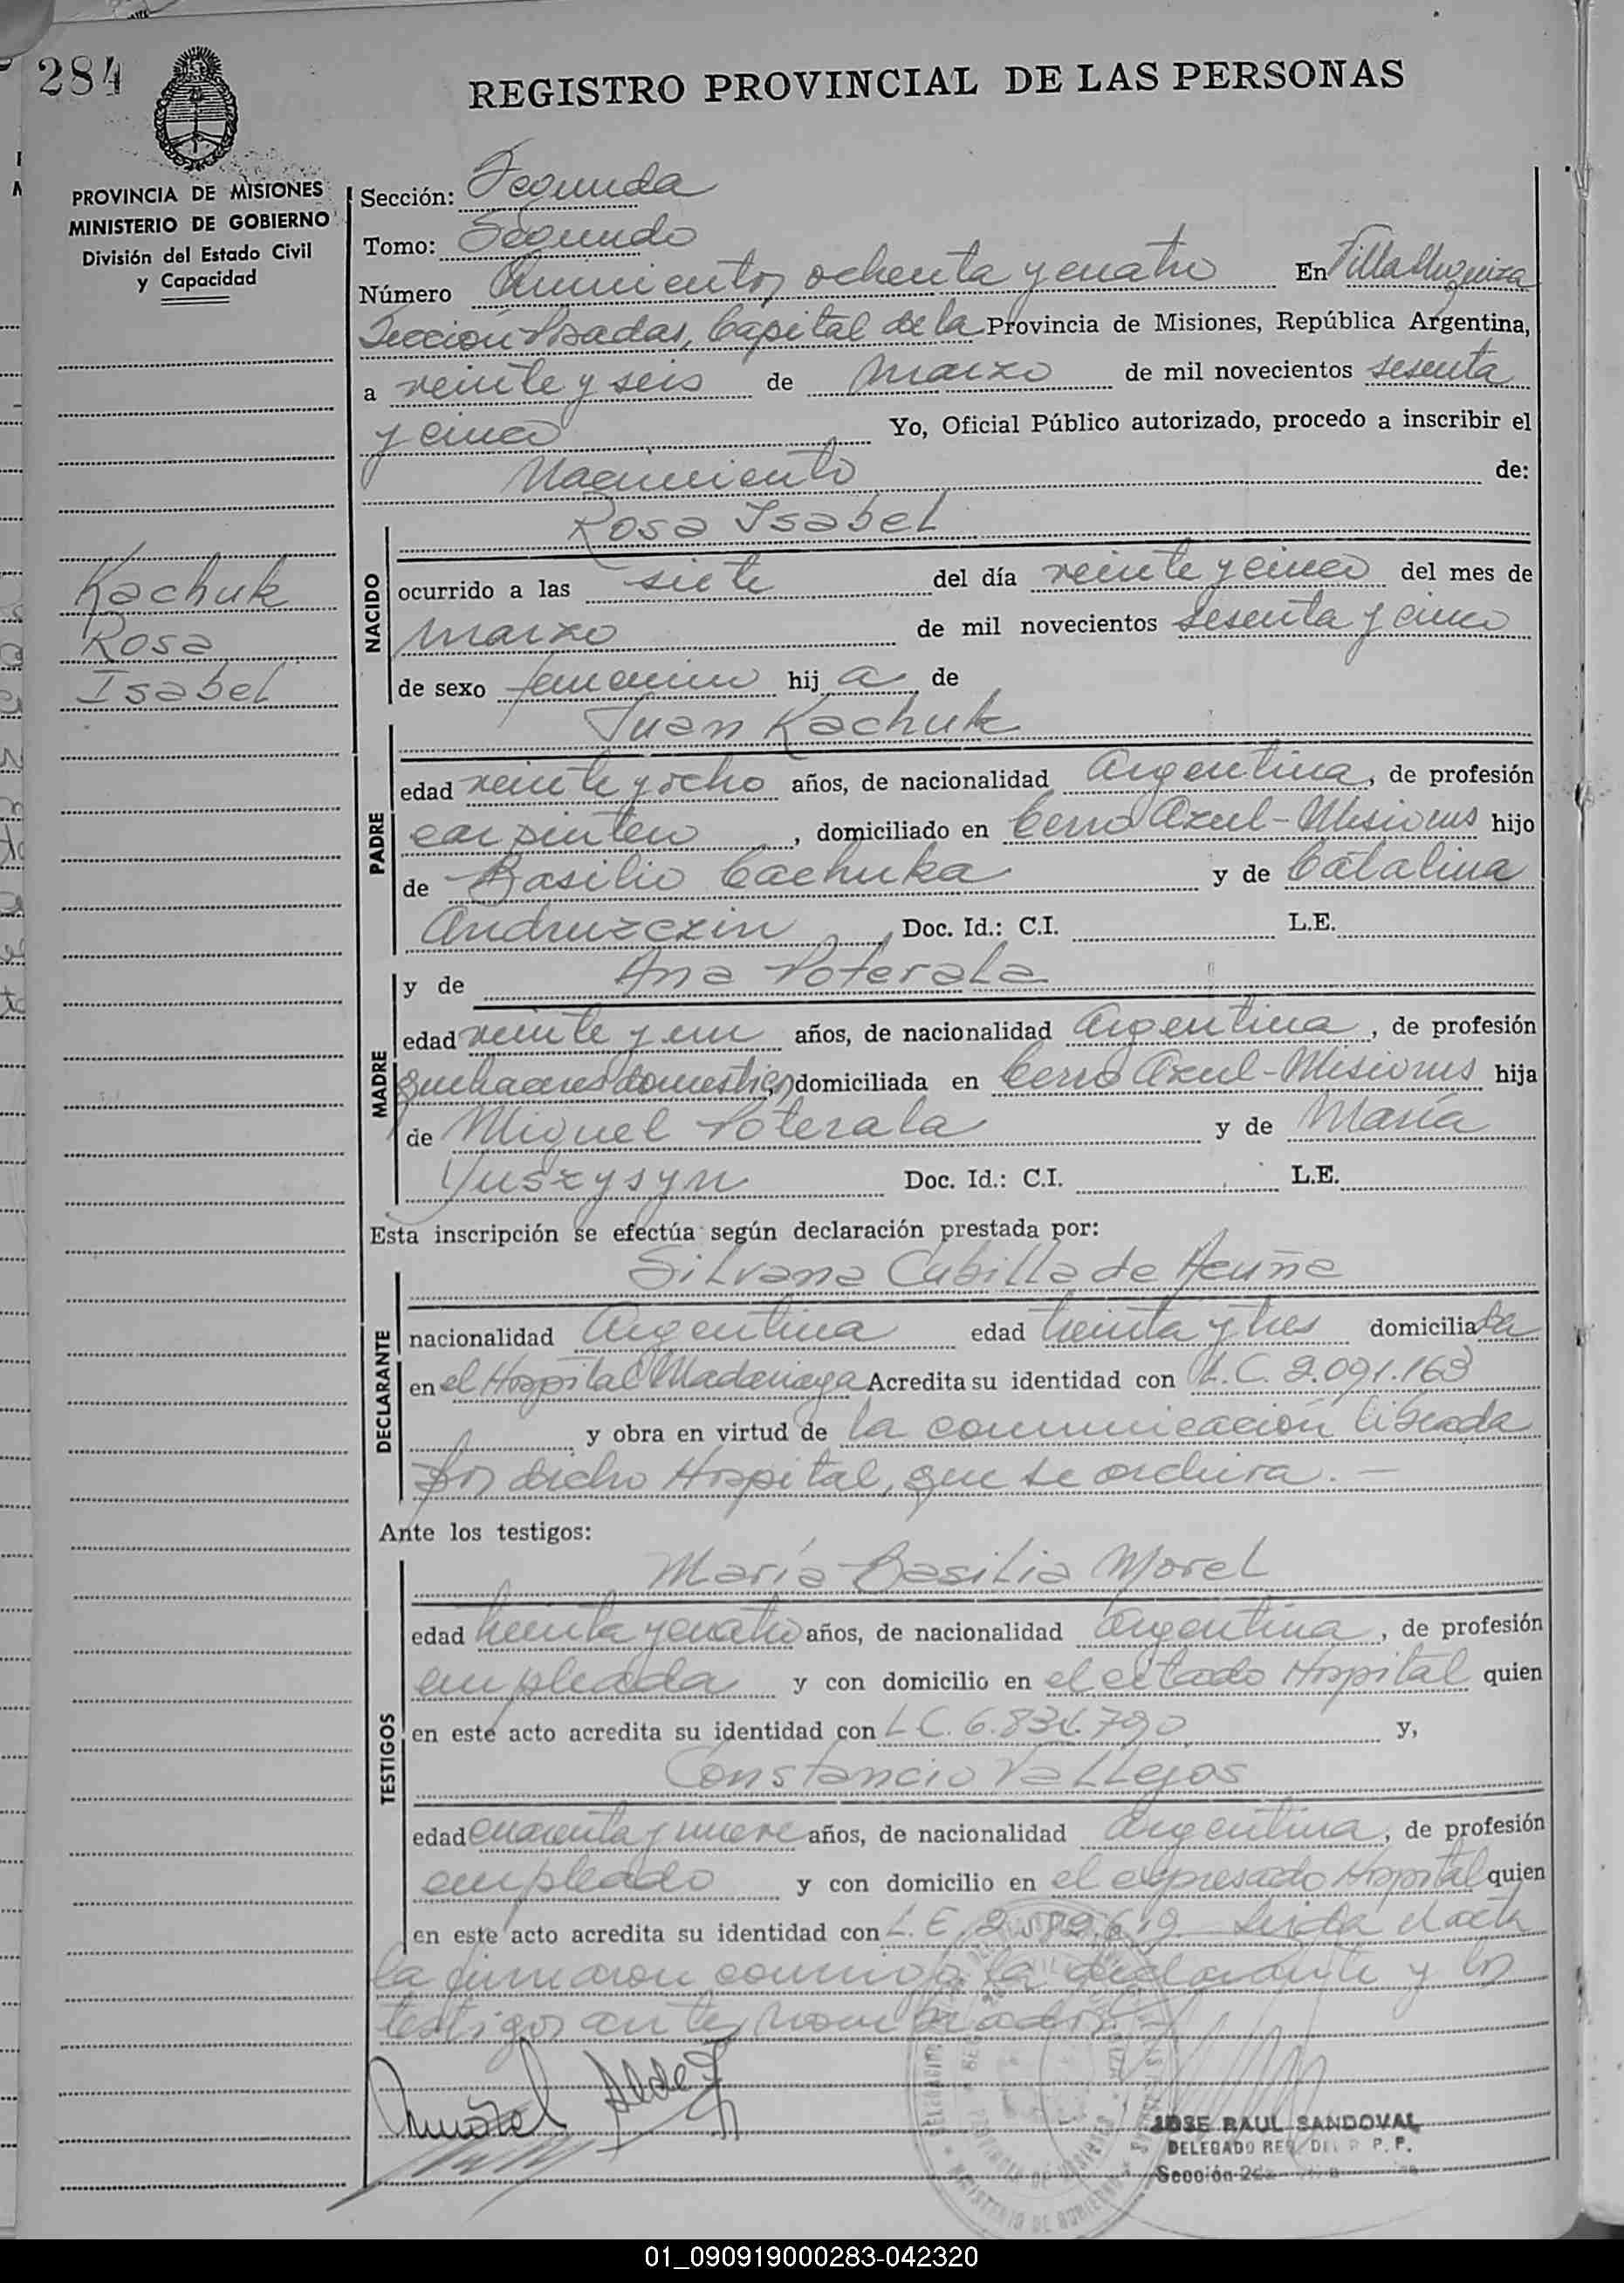 284
REGISTRO PROVINCIAL DE LAS PERSONAS
PROVINCIA DE MISIONES
MINISTERIO DE GOBIERNO
División del Estado Civil
y Capacidad
Kachuk
Rosa
Isabel
Sección: Segunda
Tomo: Segundo
Número Quinientos ochenta y cuatro En Villa Urquiza
Sección Posadas, Capital de la Provincia de Misiones, República Argentina,
a veinte y seis de marzo de mil novecientos sesenta
y cinco Yo, Oficial Público autorizado, procedo a inscribir el
Nacimiento de:
NACIDO
Rosa Isabel
ocurrido a las siete del día veinte y cinco del mes de
marzo de mil novecientos sesenta y cinco
de sexo femenino hij a de
PADRE
Juan Kachuk
edad veinte y ocho años, de nacionalidad Argentina, de profesión
carpintero, domiciliado en Cerro Azul-Misiones hijo
de Basilio Cachuka y de Catalina
Andruzczin Doc. Id.: C.I. L.E.
MADRE
y de Ana Poterala
edad veinte y un años, de nacionalidad Argentina, de profesión
quehaceres domesticos, domiciliada en Cerro Azul-Misiones hija
de Miguel Poterala y de María
Yuszysyn Doc. Id.: C.I. L.E.
Esta inscripción se efectúa según declaración prestada por:
DECLARANTE
Silvana Cubilla de Acuña
nacionalidad Argentina edad treinta y tres domicilia da
en el Hospital Madariaga Acredita su identidad con L.C. 2.091.163
y obra en virtud de la comunicación librada
por dicho Hospital, que se archiva.-
Ante los testigos:
TESTIGOS
María Basilia Morel
edad treinta y cuatro años, de nacionalidad Argentina, de profesión
empleada y con domicilio en el citado Hospital quien
en este acto acredita su identidad con L.C. y,
Constancio Vallejos
edad cuarenta y nueve años, de nacionalidad Argentina, de profesión
empleado y con domicilio en el expresado Hospital quien
en este acto acredita su identidad con L.E. Leida el acta
la firmaron conmigo la declarante y los
testigos antes nombrados.-
JOSE RAUL SANDOVAL
DELEGADO REG. DEL R. P. P.
Sección 2da
01_090919000283-042320